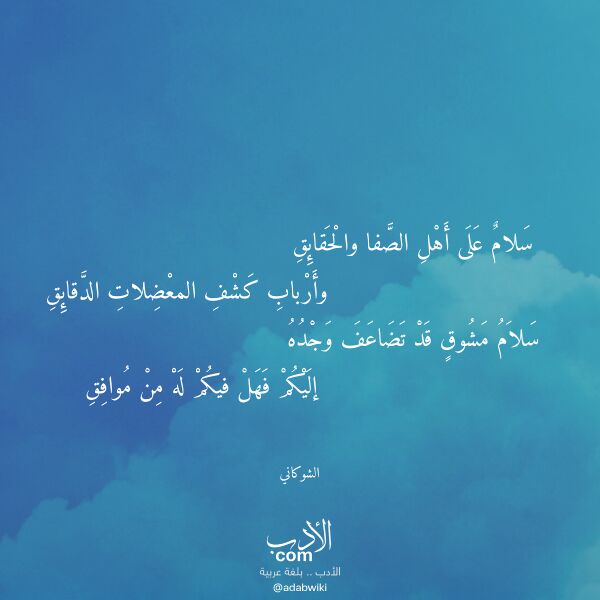 سَلامٌ عَلَى أَهْلِ الصَّفا والْحَقايِقِ
وأَرْبابِ كَشْفِ المعْضِلاتِ الدَّقايِقِ
سَلاَمُ مَشُوقٍ قَدْ تَضَاعَفَ وَجْدُهُ
إلَيْكُمْ فَهَلْ فيكُمْ لَهْ مِنْ مُوافِقِ
الشوكاني
الأدب
com
الأدب .. بلغة عربية
@adabwiki